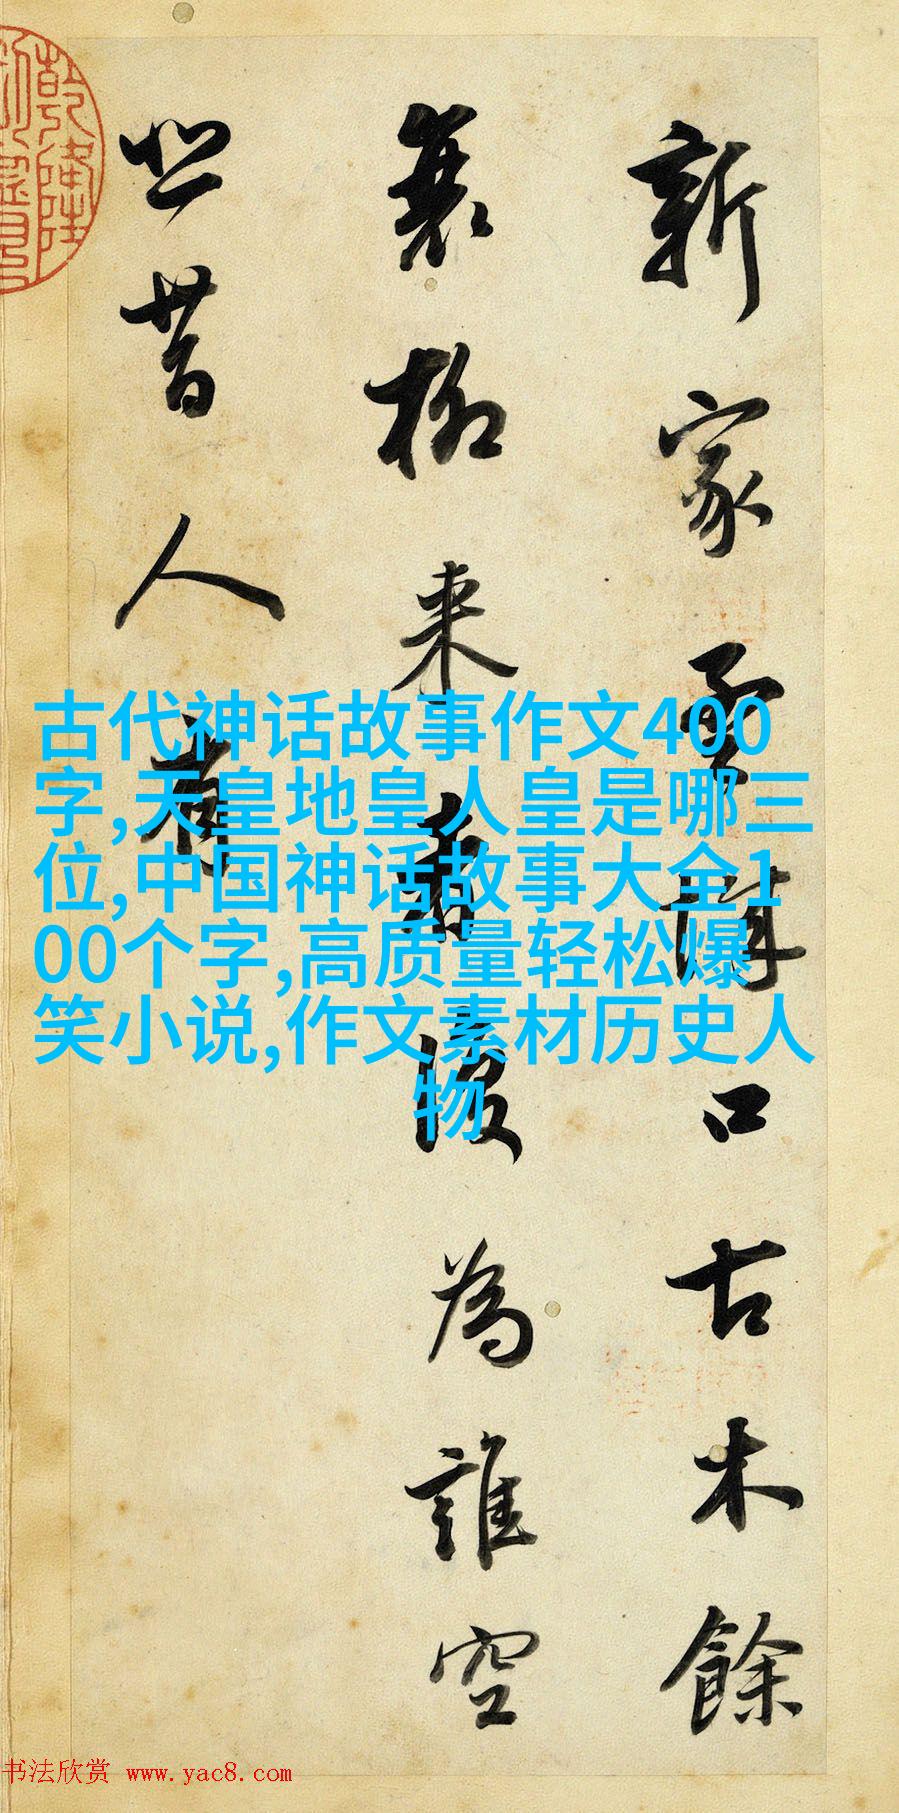 新家孟城口古木餘
衰柳来者復為誰空
悲昔人有
古代神话故事作文400
字,天皇地皇人皇是哪三
位,中国神话故事大全1
00个字,高质量轻松爆
笑小说,作文素材历史人
物
乾隆
书法欣赏 www.yac8.com